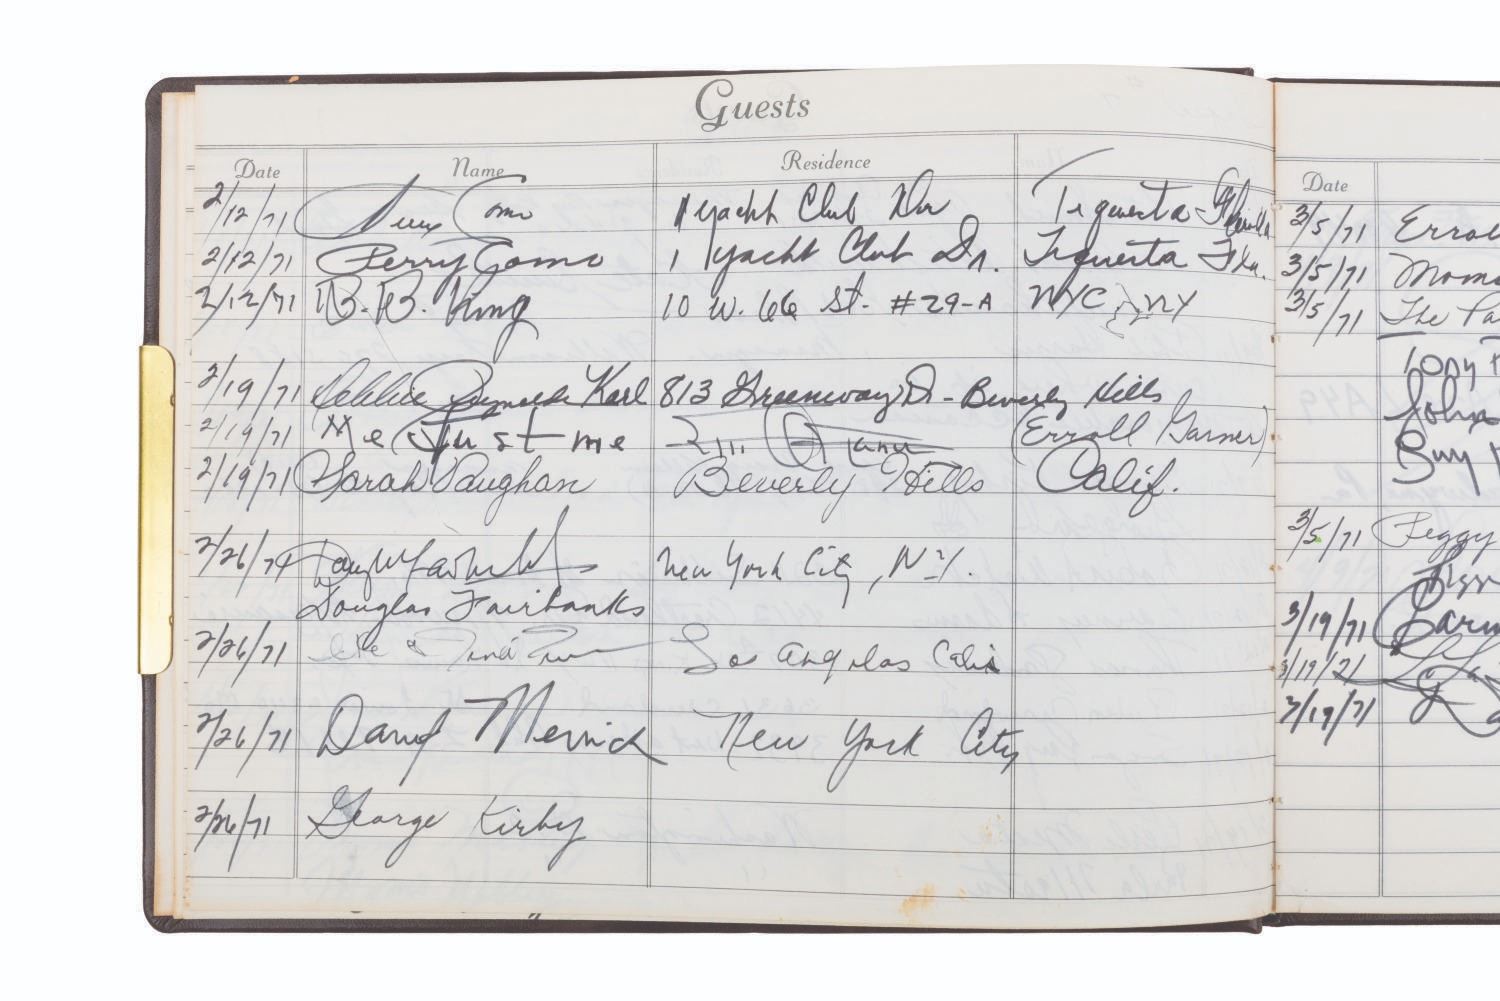 Guests
Date Name Residence
2/12/71 Perry Como 1 Yacht Club Dr Tequesta Florida
2/12/71 Perry Como 1 Yacht Club Dr. Tequesta Fla.
2/12/71 B. B. King 10 W. 66 St. #29-A NYC NY
2/19/71 Debbie Reynolds Karl 813 Greenway Dr - Beverly Hills
2/19/71 Me Just me (Erroll Garner)
2/19/71 Sarah Vaughan Beverly Hills Calif.
2/26/71 New York City, N.Y.
Douglas Fairbanks
2/26/71 Ike & Tina Turner Los Angelas Calis
2/26/71 David Merrick New York City
2/26/71 George Kirby
Date
3/5/71 Errol
3/5/71 Mom
3/5/71 The Pa
Tony
John
Buy
3/5/71 Peggy
3/19/71
3/19/71
3/19/71